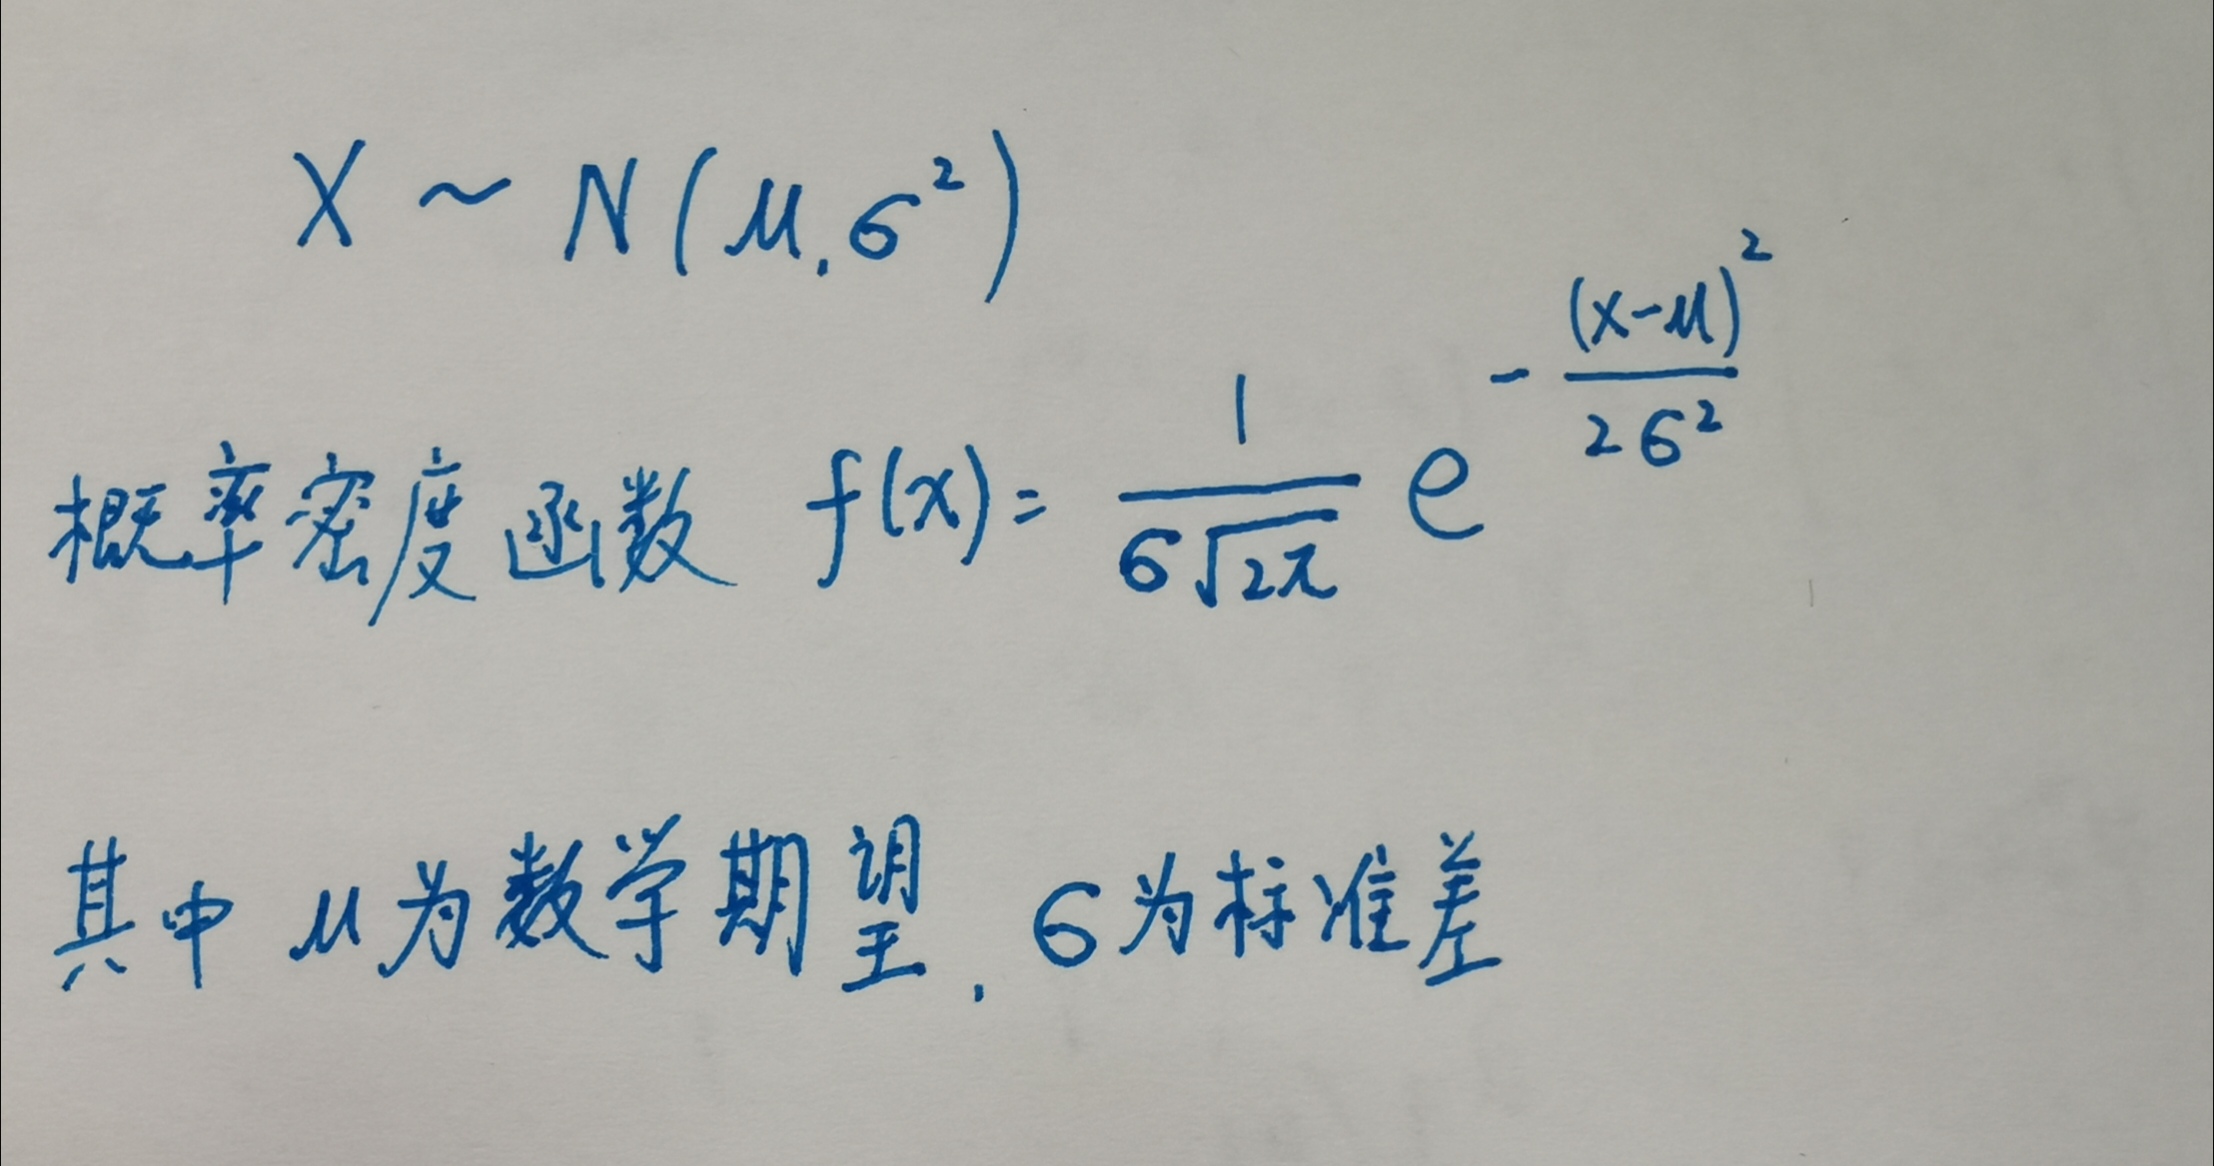 X ~ N(μ,σ²)
概率密度函数 f(x) = \frac{1}{σ\sqrt{2π}} e^{-\frac{(x-μ)^2}{2σ^2}}
其中 μ为数学期望,σ为标准差